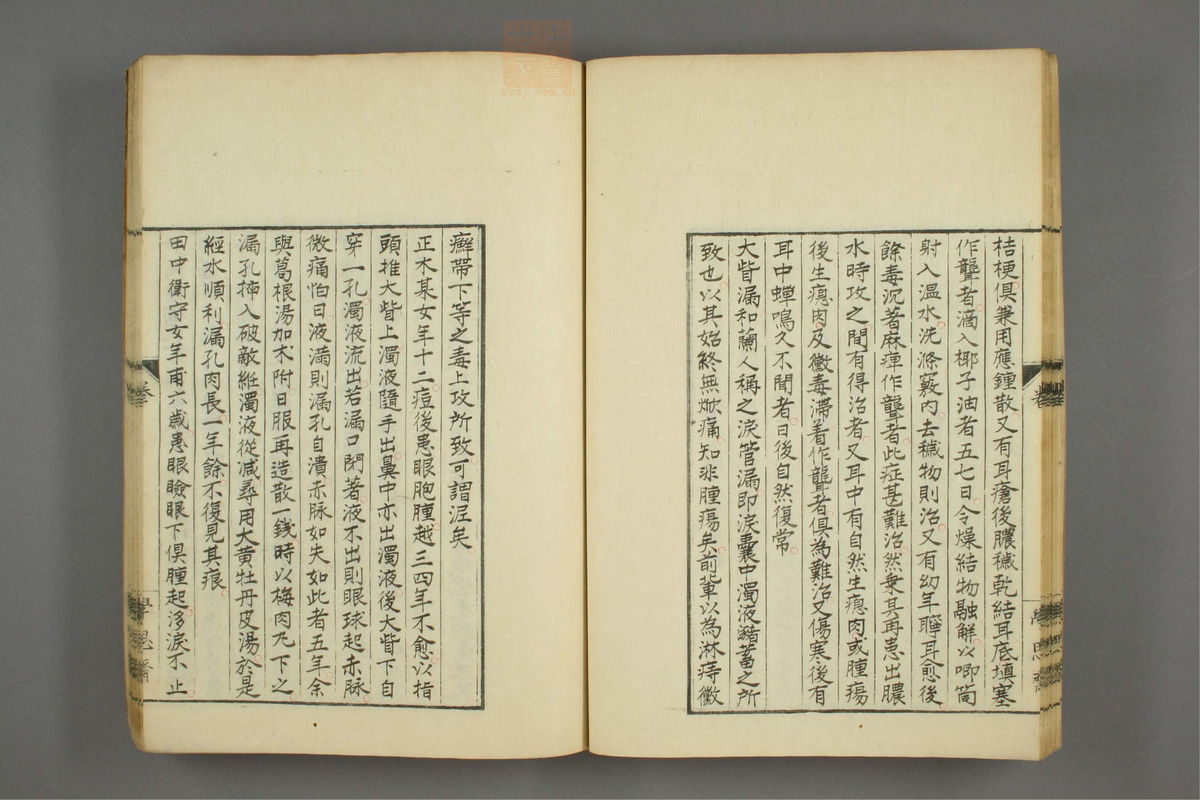 桔梗俱兼用應鍾散又有耳瘡後膿穢乾結耳底填塞
作聾者滴入椰子油者五七日令燥結物融解以唧筒
射入溫水洗滌竅內去穢物則治又有幼年聤耳愈後
餘毒沉著麻痺作聾者此症甚難治然乗其再患出膿
水時攻之間有得治者又耳中有自然生瘜肉或腫瘍
後生瘜肉及黴毒滯着作聾者俱為難治又傷寒後有
耳中蟬鳴久不聞者日後自然復常
大眥漏和蘭人稱之淚管漏即淚囊中濁液瀦蓄之所
致也以其始終無焮痛知非腫瘍矣前輩以為淋痔黴
癬帶下等之毒上攻所致可謂泥矣
正木某女年十二痘後患眼胞腫越三四年不愈以指
頭推大眥上濁液隨手出鼻中亦出濁液後大眥下自
穿一孔濁液流出若漏口閉著液不出則眼球起赤脉
微痛怕日液満則漏孔自潰赤脉如失如此者五年余
與葛根湯加朮附日服再造散一錢時以梅肉丸下之
漏孔揷入破敵紝濁液從减尋用大黄牡丹皮湯於是
經水順利漏孔肉長一年餘不復見其痕
田中衛守女年甫六歳患眼瞼眼下俱腫起淚不止